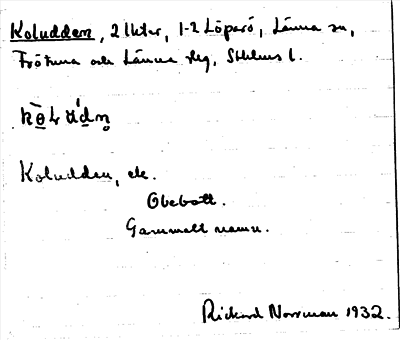 Koludden, 2 lhtar, 1-2 Löparö, Länna sn,
Frötuna och Länna skg, Sthlms l.
Koludden, ek.
Obebott.
Gammalt namn.
Rickard Norrman 1932.